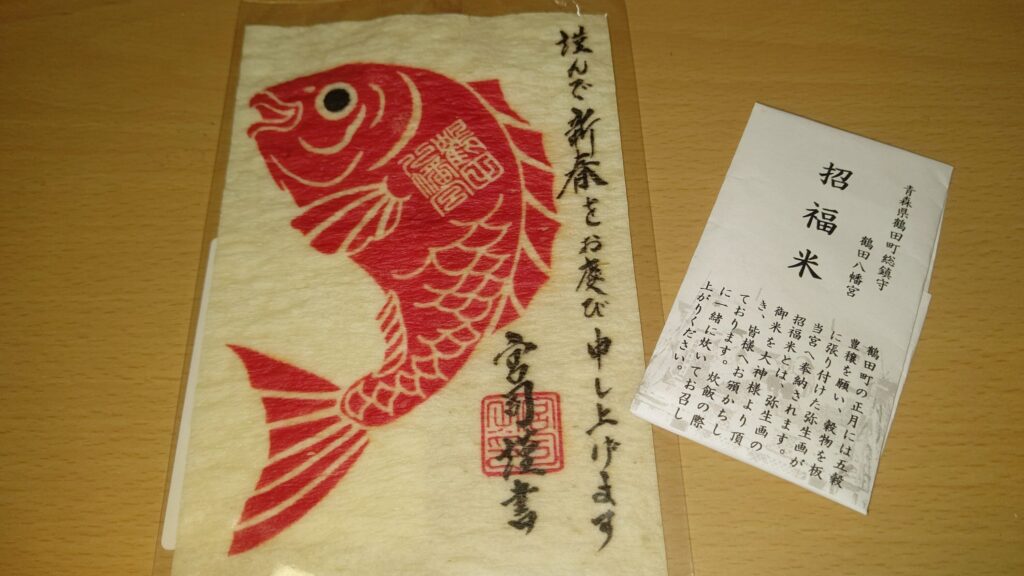 謹んで新春をお慶び申し上げます
宮司謹書
青森県鶴田町総鎮守
鶴田八幡宮
招福米
鶴田町の正月には五穀
豊穣を願い、穀物を板
に張り付けた弥生画が
当宮へ奉納されます。
招福米とは、弥生画の
御米を大神様より頂
き、皆様へお願かちし
ております。炊飯の際
に一緒に炊いてお召し
上がりください。